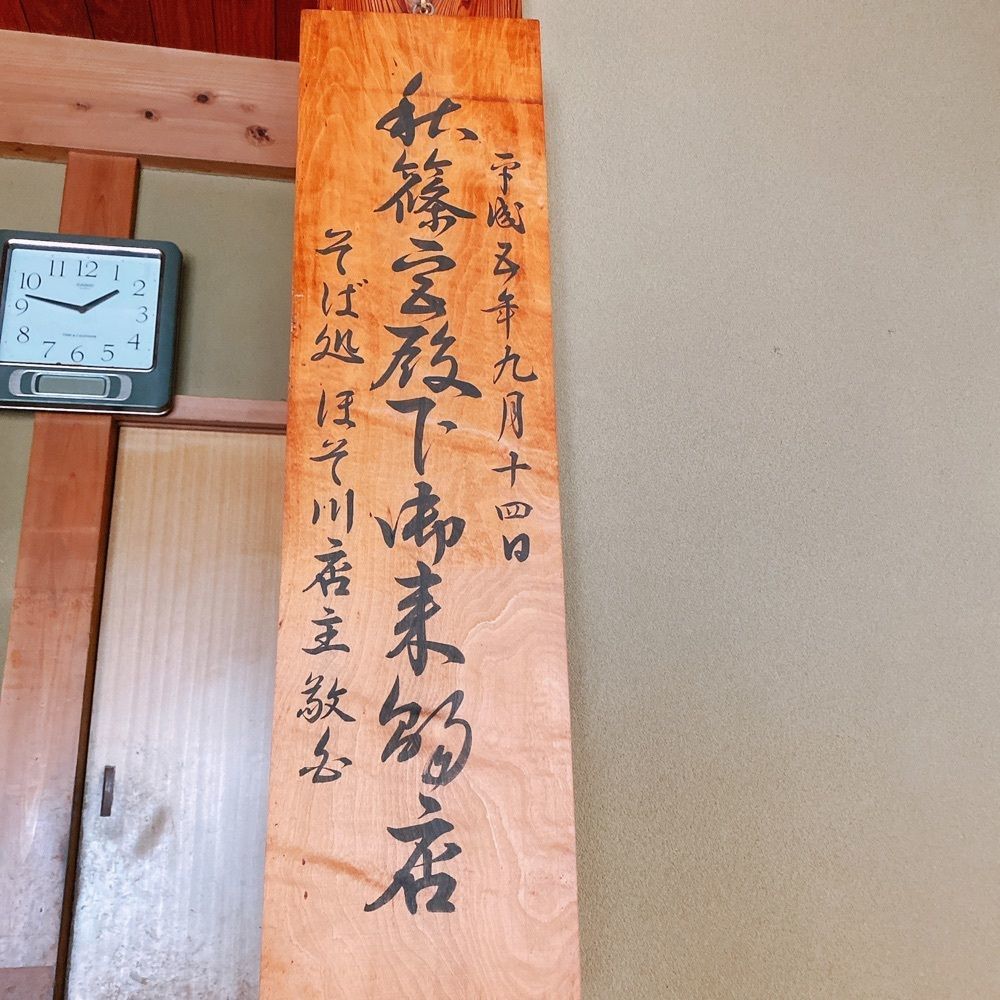 平成五年九月十四日
秋篠宮殿下御来店
そば処 ほそ川 店主 敬白
CASIO
12
1
2
3
4
5
6
7
8
9
10
11